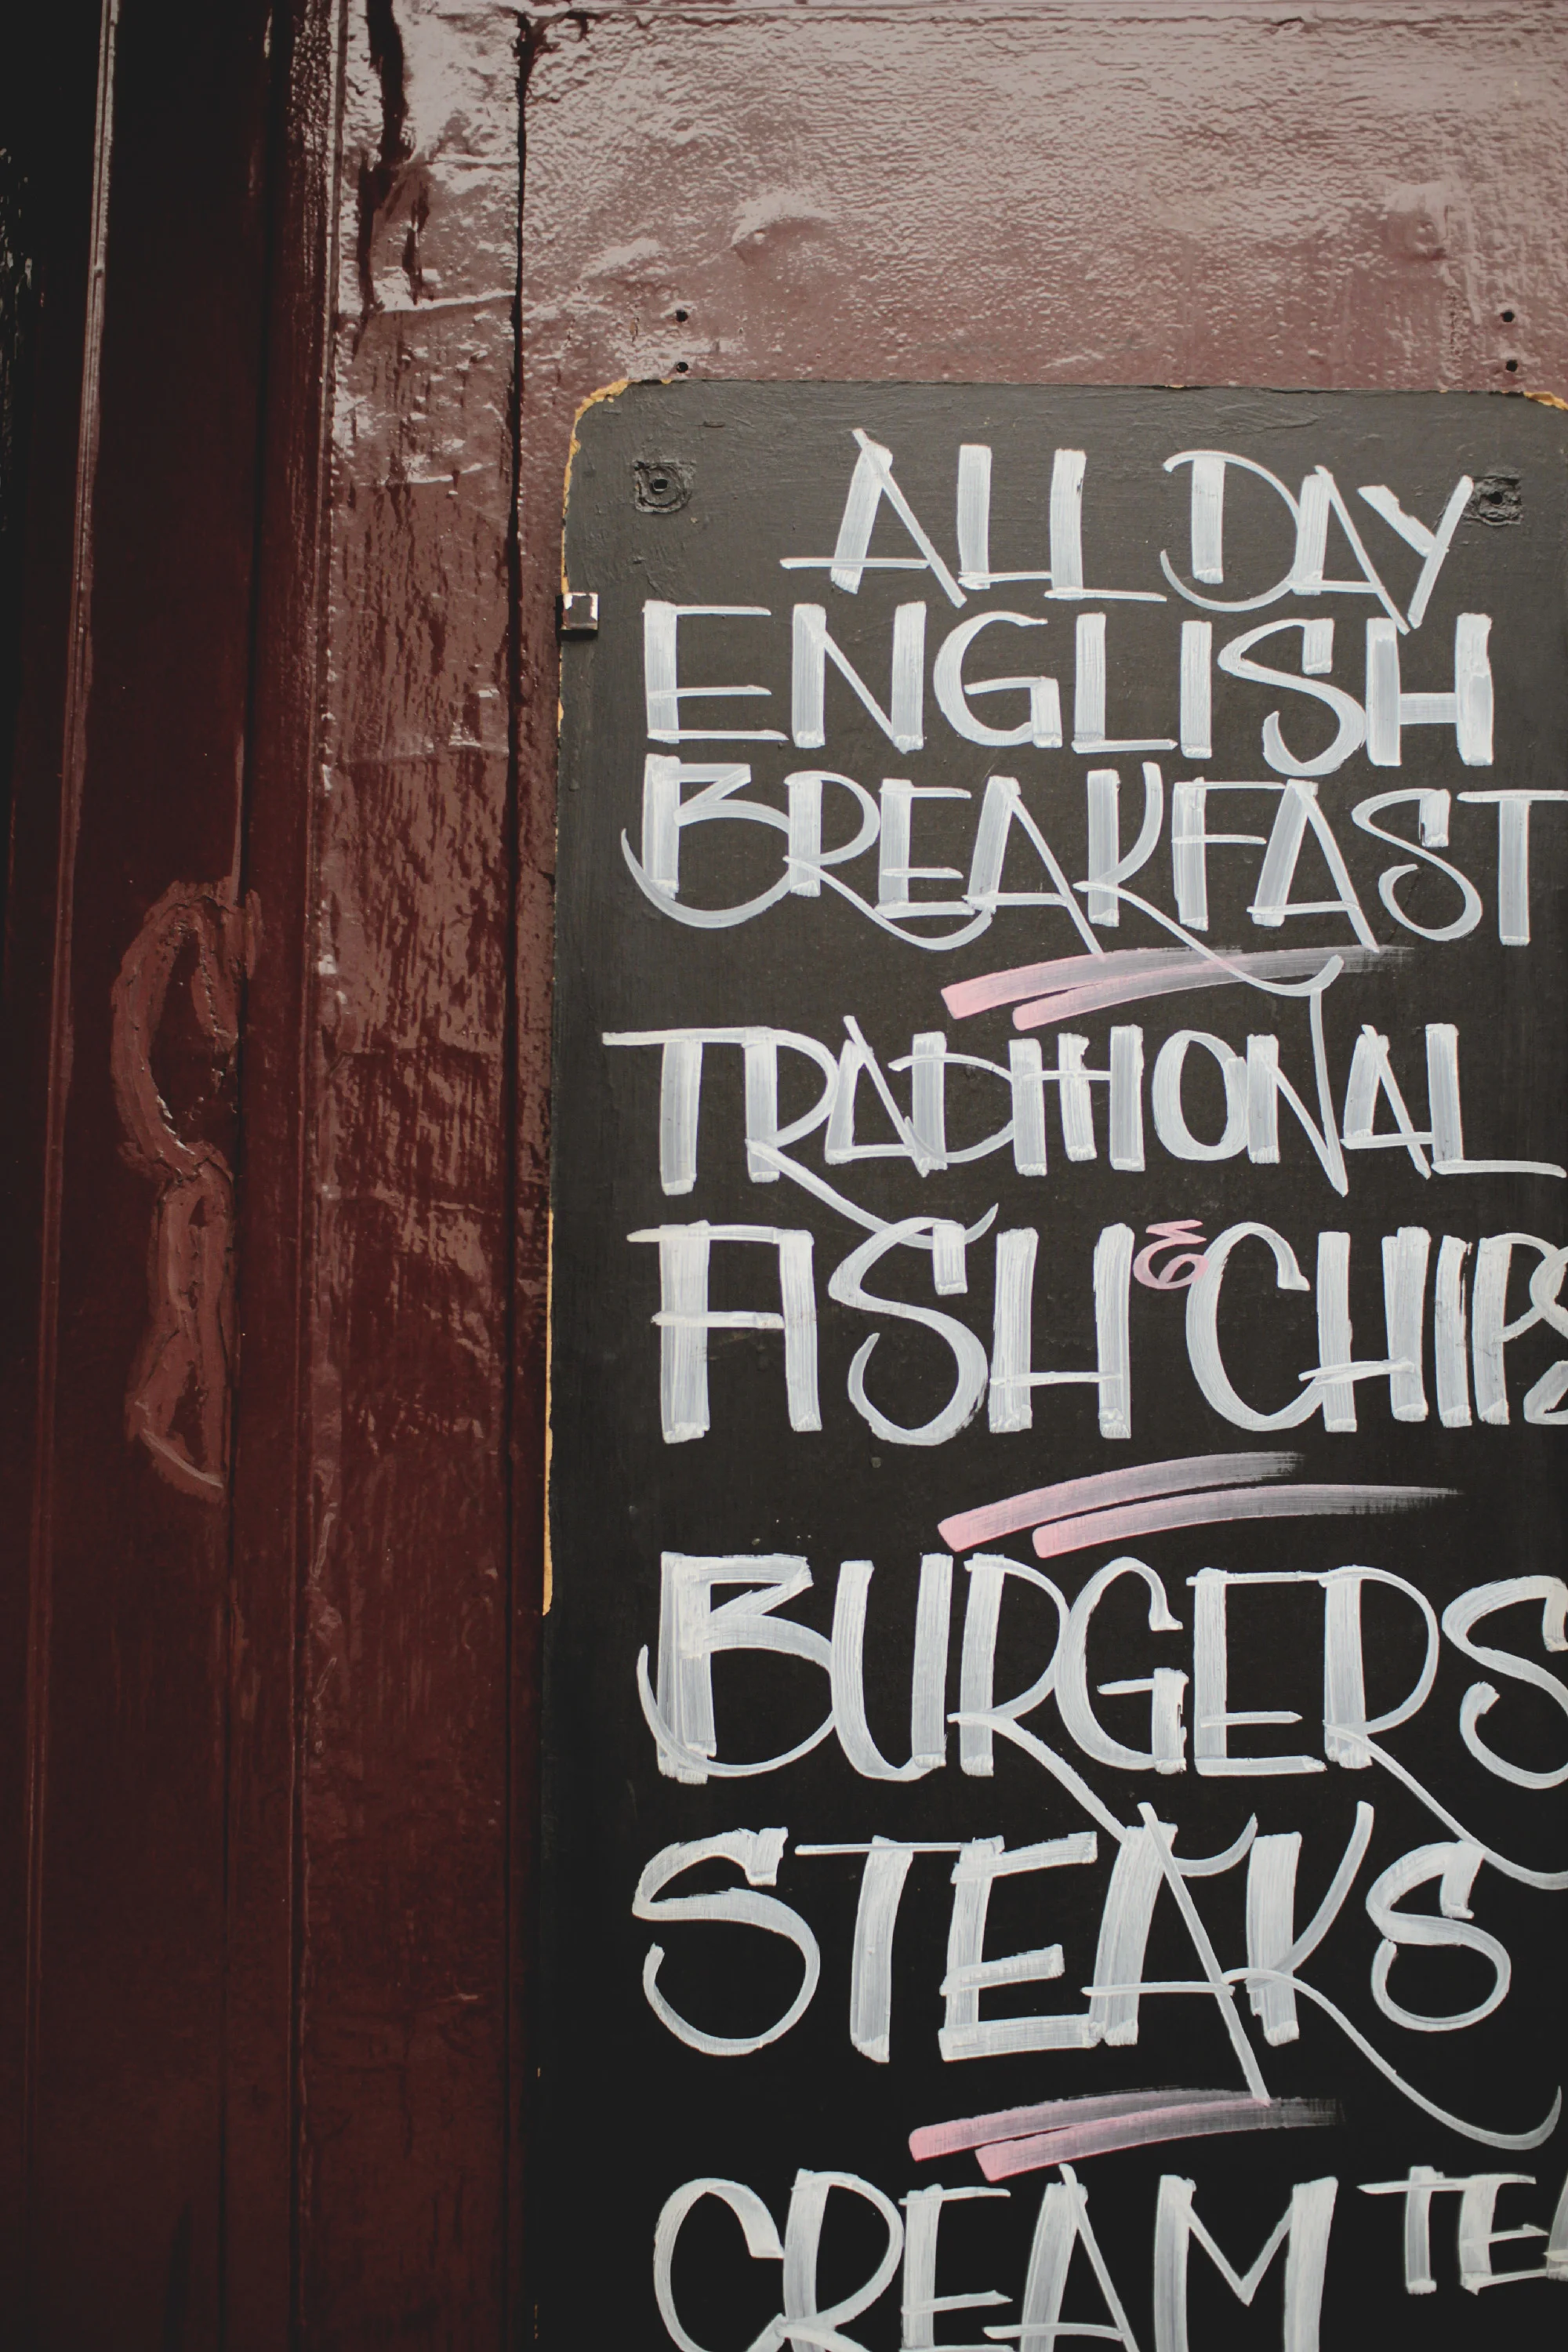 ALL DAY
ENGLISH
BREAKFAST
TRADITIONAL
FISH & CHIPS
BURGERS
STEAKS
CREAM